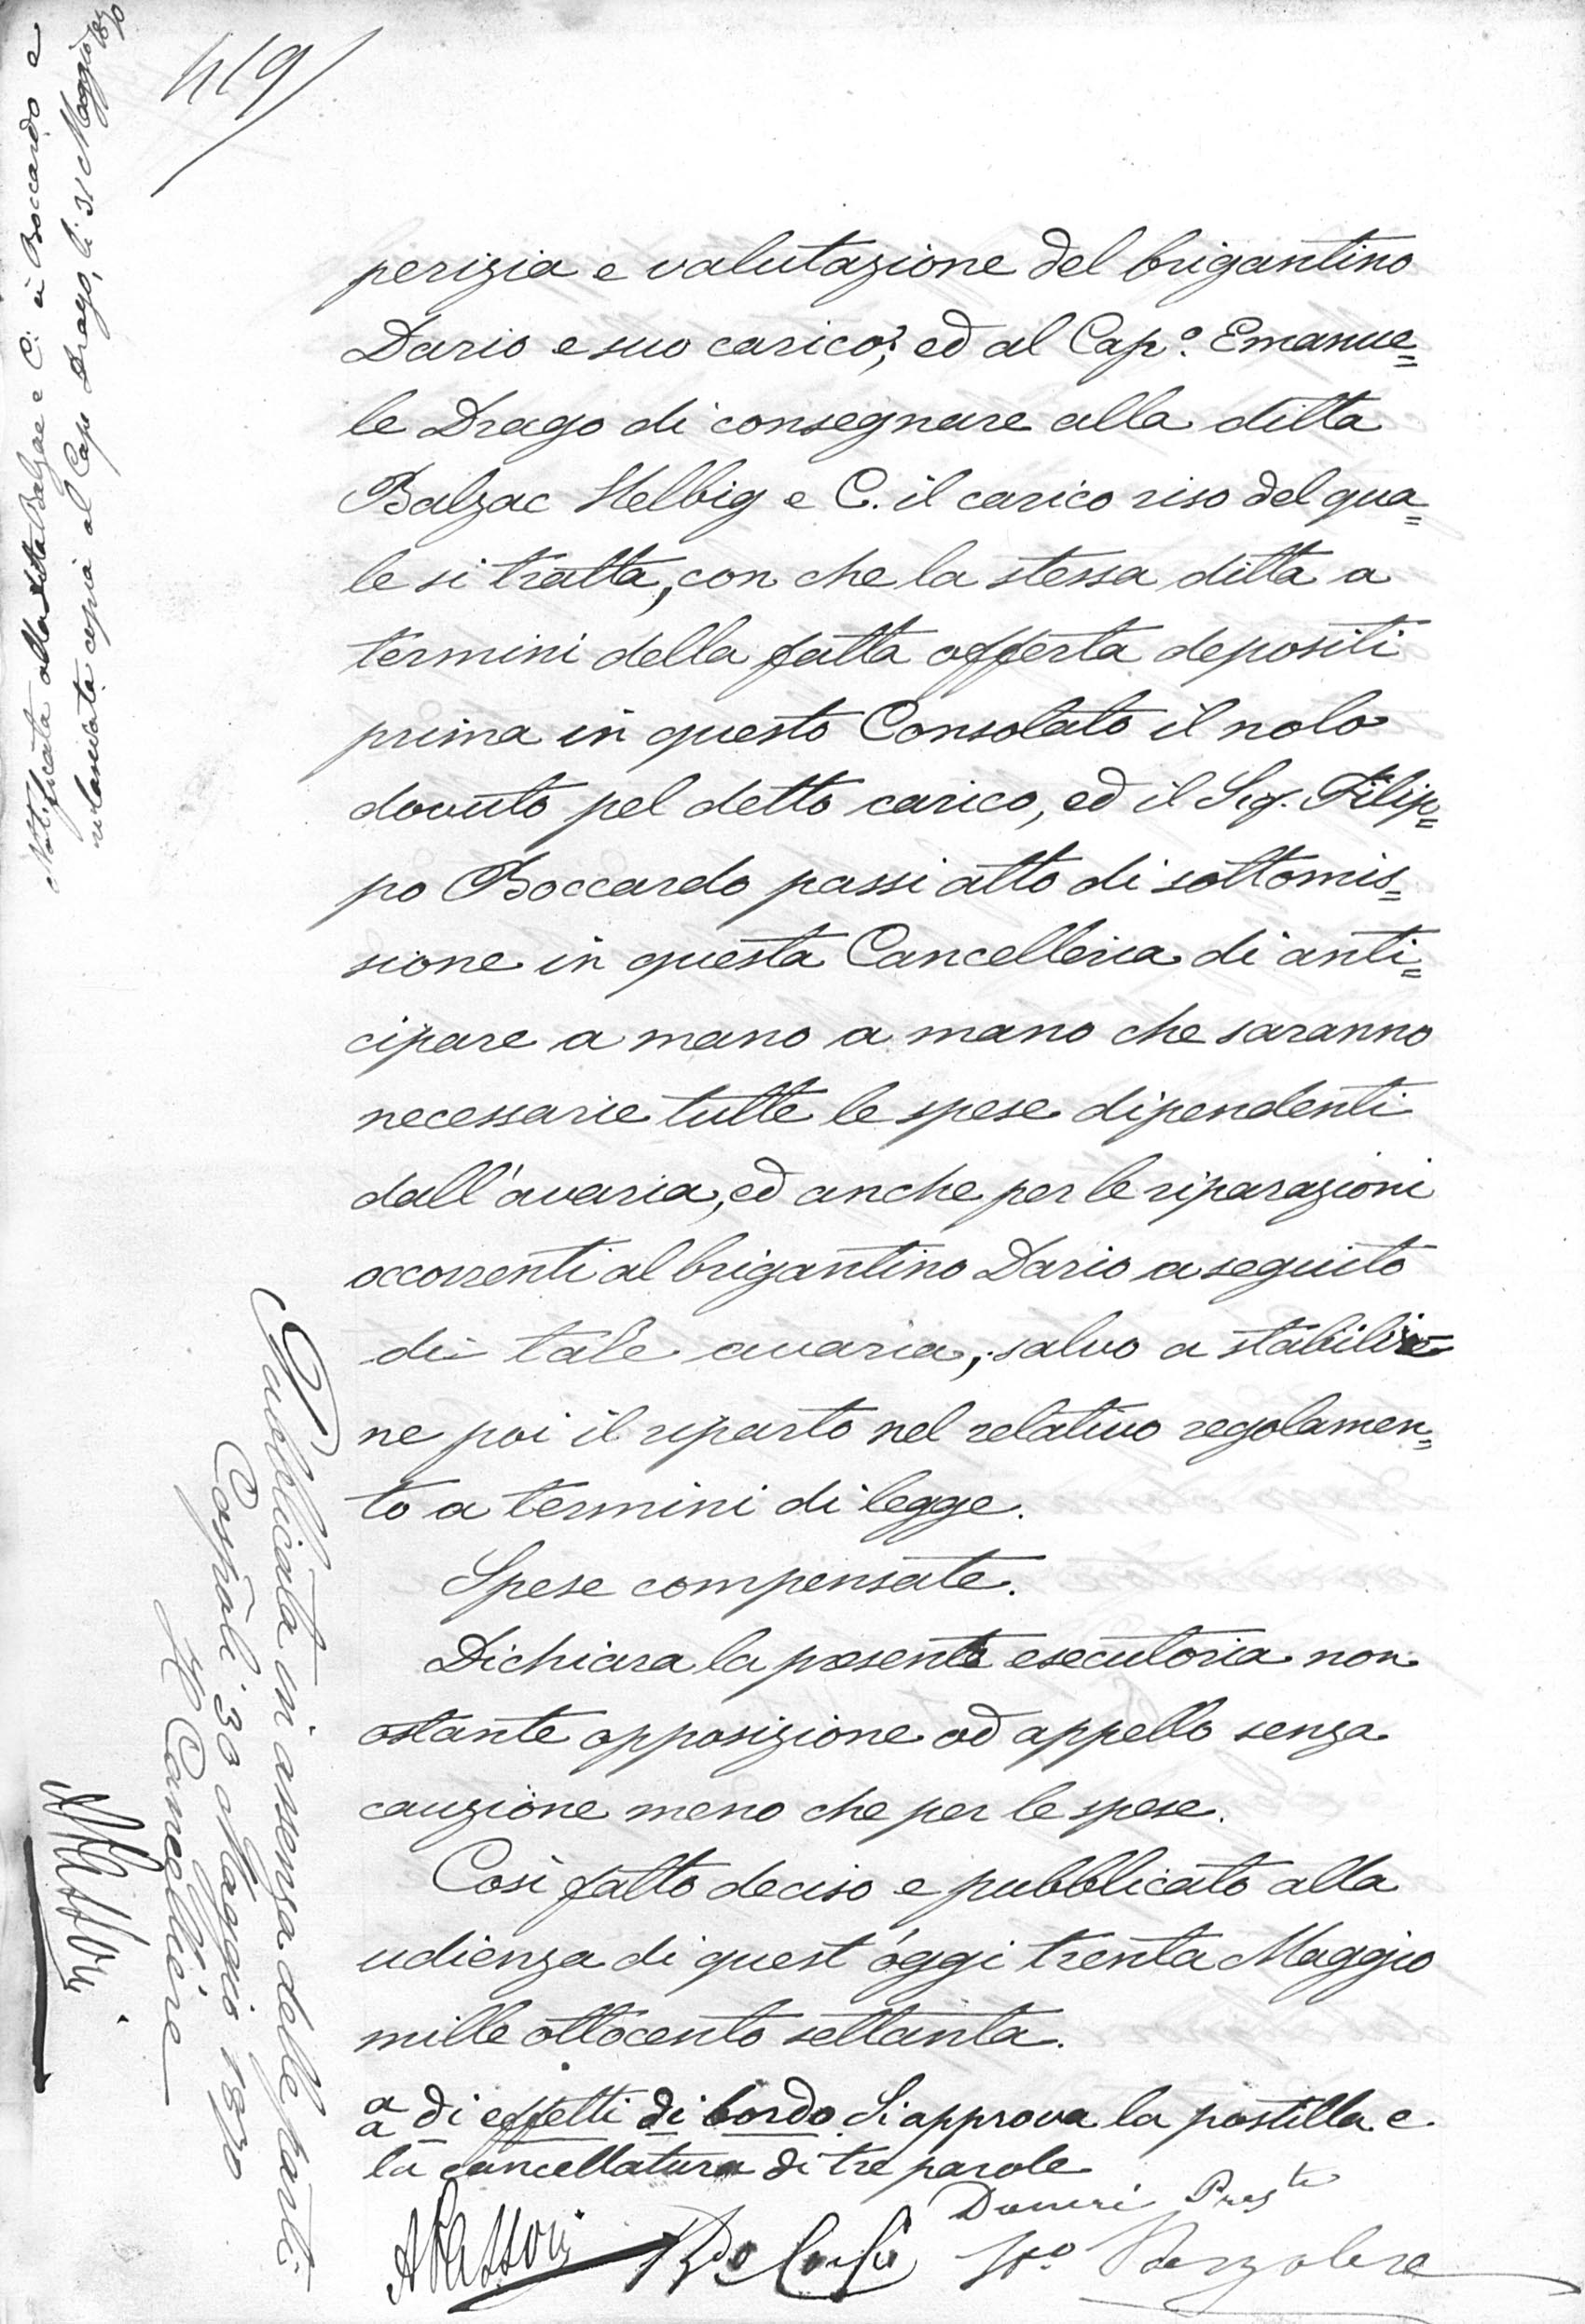 419
perizia e valutazione del brigantino
Dario e suo carico; ed al Cap.º Emanue=
le Drago di consegnare alla ditta
Balzac Helbig e C. il carico riso del qua=
le si tratta, con che la stessa ditta a
termini della fatta offerta depositi
prima in questo Consolato il nolo
dovuto pel detto carico, ed il Sig. Filip=
po Boccardo passi atto di sottomis=
sione in questa Cancelleria di anti=
cipare a mano a mano che saranno
necessarie tutte le spese dipendenti
dall'avaria, ed anche per le riparazioni
occorrenti al brigantino Dario a seguito
di tale avaria, salvo a stabilir
ne poi il riparto nel relativo regolamen=
to a termini di legge.
Spese compensate.
Dichiara la presente esecutoria non
ostante opposizione od appello senza
cauzione meno che per le spese.
Così fatto deciso e pubblicato alla
udienza di quest'oggi trenta Maggio
mille ottocento settanta.
a a di effetti di bordo. Si approva la postilla e
la cancellatura di tre parole
Preste
Notificata alla ditta Balzac e C: a Boccardo e
rilasciata copia al Cap Drago, li 31 Maggio 1870
Pubblicata in assenza delle parti
li 30 Maggio 1870
Il Cancelliere